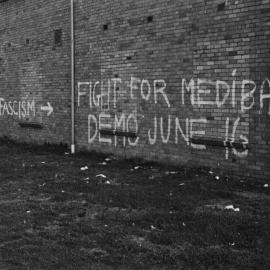 FASCISM →
FIGHT FOR MEDIBA
DEMO JUNE 16